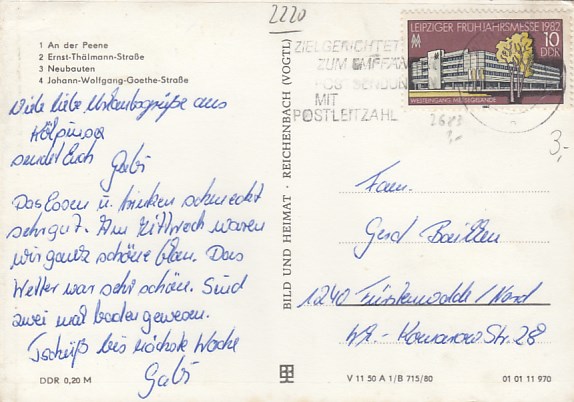 2220
1 An der Peene
2 Ernst-Thälmann-Straße
3 Neubauten
4 Johann-Wolfgang-Goethe-Straße
Viele liebe Urlaubsgrüße aus
sendet Euch
Gabi
Das Essen u. trinken schmeckt
sehr gut. Am Mittwoch waren
wir ganz schöne blau. Das
Wetter war sehr schön. Sind
zwei mal baden gewesen.
Tschüß bis nächste Woche
Gabi
DDR 0,20 M
BILD UND HEIMAT · REICHENBACH (VOGTL)
ZIELGERICHTET
ZUM EMPFÄN
POSTSENDUN
MIT
POSTLEITZAHL
LEIPZIGER FRÜHJAHRSMESSE 1982
10
DDR
WESTEINGANG MESSEGELÄNDE
3,-
Fam.
Gerd
1240 Fürstenwalde / Nord
W.-Komarow Str. 28
V 11 50 A 1/B 715/80
01 01 11 970